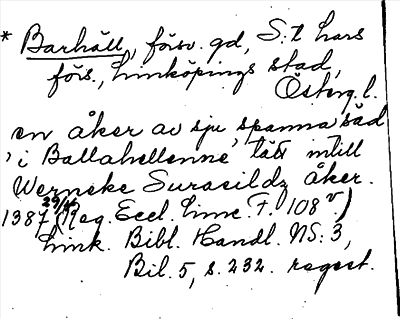 * Barhäll, försv. gd, S:t Lars
förs., Linköpings stad,
Österg. l.
en åker av sju spanna säd
i Ballahellenne tätt intill
Werneke Surasildz åker.
1387 29/4 (Reg. Eccl. Linc. F. 108 v.)
Link. Bibl. Handl. NS: 3,
Bil. 5, s. 232. regest.